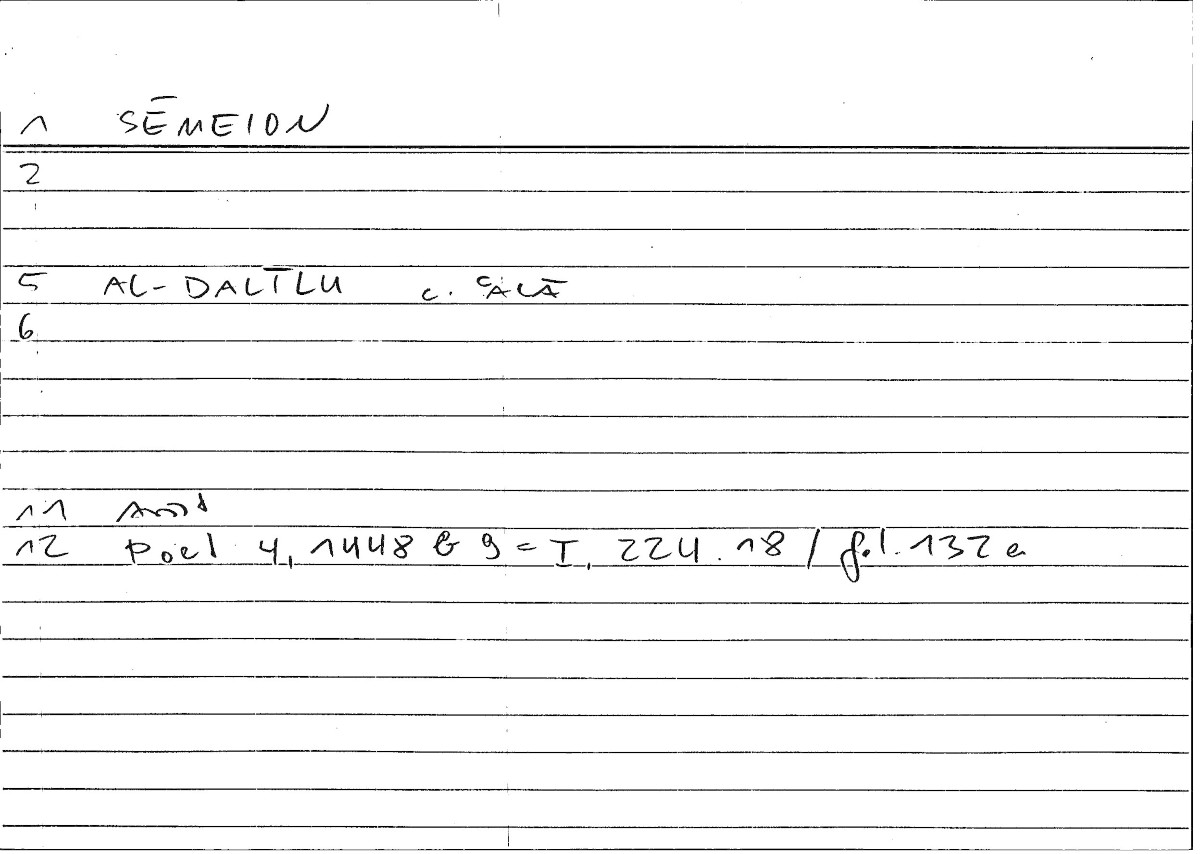 1 SĒMEION
2
5 AL-DALĪLU c. ʿALĀ
6
11 Arist
12 Poet 4, 1448 b 9 = I, 224.18 / fol. 132 a